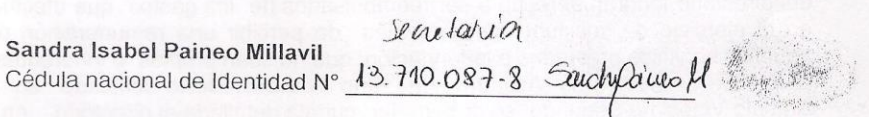 Secretaria
Sandra Isabel Paineo Millavil
Cédula nacional de Identidad N° 13.710.087-8 Sandy Paineo M